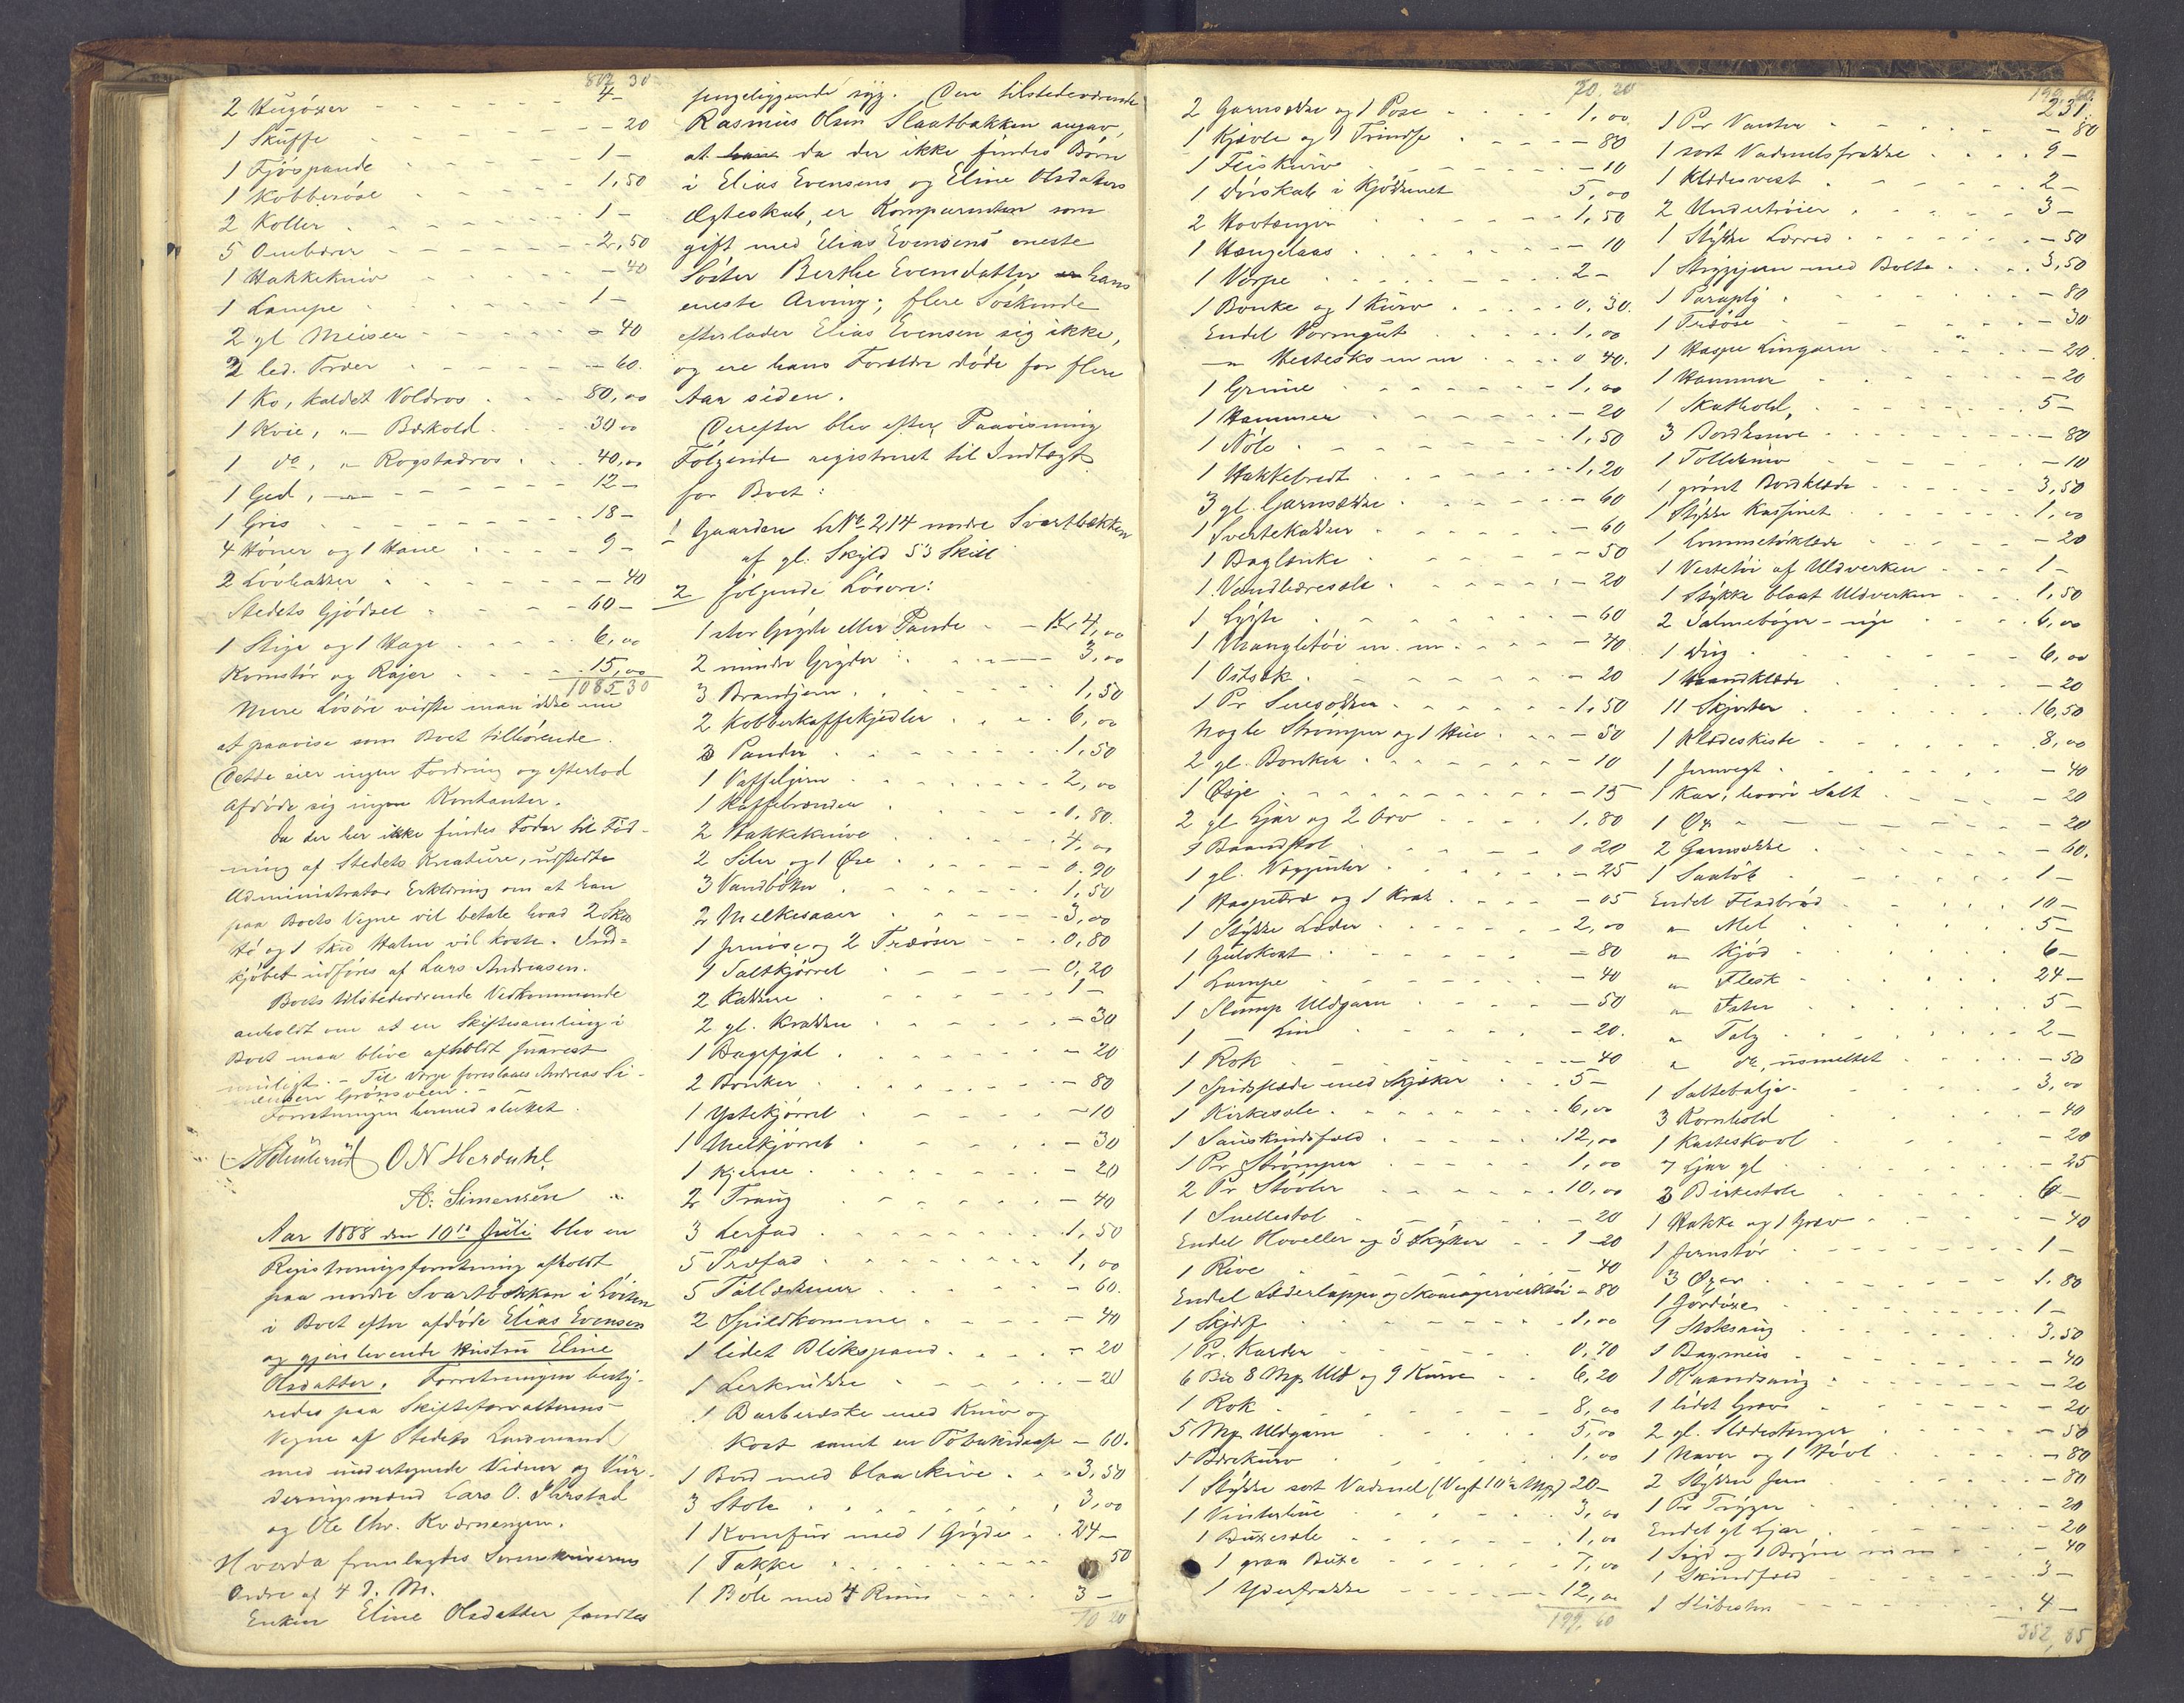 807 30
2 Hugöxer - - - - - - 4-
1 Skuffe - - - - - - - 20
1 Fjöspande - - - - - 1 -
1 Kobberöse - - - - - 1,50
2 Koller - - - - - 1 -
5 Ombærer - - - - - 2,50
1 Hakkekniv - - - - - 40
1 Lampe - - - - - 1 -
2 gl Meiser - - - - - 40
2 led. Træer - - - - - 60.
1 Ko, kaldet Voldros - - - 80,00
1 Kvie, " - Bækold - - - 30 00
1 do, " Rogstadros - - 40,00
1 Ged, - - - - - 12 -
1 Gris - - - - - 18 -
4 Höner og 1 Hane - - - 9 -
2 Lövhakker - - - - - 40
Stedets Gjödsel - - - - 60 -
1 Stige og 1 Hage - - - 6,00
Kornstör og Rajer - - - 15,00
1085 30
Mere Lösöre vidste man ikke nu
at paavise som Boet tilhörende.
Dette eier ingen Fordring og efterlod
Afdöde sig ingen Kontanter.
Da der her ikke findes Foder til Föd-
ning af Stedets Kreature, udstedte
Administrator Erklæring om at han
paa Boets Vegne vil betale hvad 2 Skd
Hö og 1 Skd Halm vil koste. Ind-
kjöbet udföres af Lars Andreasen.
Boets tilstedeværende Vedkommende
anholdt om at en Skiftesamling i
Boet maa blive afholdt snarest
muligt. - Til Værge foreslaaes Andreas Si-
mensen Grönsveen.
Forretningen hermed sluttet.
O N Herdahl
A. Simensen
Aar 1888 den 10de Juli blev en
Registreringsforretning afholdt
paa nordre Svartbækken i Löiten
i Boet efter afdöde Elias Evensen
og gjenlevende Hustru Eline
Olsdatter. Forretningen besty-
redes paa Skifteforvalterens
Vegne af Stedets Lensmand
med undertegnede Vidner og Vur-
deringsmænd Lars O.
og Ole Chr. Kværnengen.
Hvorda fremlagdes Sorenskriverens
Ordre af 4 d. M.
Enken Eline Olsdatter fandtes
sengeliggende syg. Den tilstedeværende
Rasmus Olsen Slaatbakken angav,
at han da der ikke findes Börn
i Elias Evensens og Eline Olsdatters
Ægteskab, er Komparenten som
gift med Elias Evensens eneste
Söster Berthe Evensdatter er hans
eneste Arving; flere Söskende
efterlader Elias Evensen sig ikke,
og ere hans Forældre döde for flere
Aar siden.
Derefter blev efter Paavisning
Fölgende registreret til Indtægt
for Boet:
1 Gaarden LNo 214 nordre Svartbækken
af gl. Skyld 53 Skill
2 fölgende Lösöre:
1 stor Gryde eller Pande - - Kr 4,00
2 mindre Gryder - - - - 3,00
3 Brandjern - - - - 1,50
2 Kobberkaffekjedler - - - 6,00
3 Pander - - - - 1,50
1 Vaffeljern - - - - 2,00
1 Kaffebrænder - - - - 1,80.
2 Hakkeknive - - - - 4,00
2 Siler og 1 Öse - - - - 0.90
3 Vandbötter - - - - 1,50
2 Melkesaaer - - - - 3,00
1 Jernöse og 2 Træöser - - - 0,80
1 Saltkjörrel - - - - 0,20
2 Kakker - - - - 1 -
2 gl. Krakker - - - - 30
1 Bagefjöl - - - - 20
2 Bonker - - - - 80
1 Ystekjörrel - - - - 10
1 Melkjörrel - - - - 30
1 Kjerne - - - - 20
2 Traug - - - - 40
3 Lerfad - - - - 1,50
5 Træfad - - - - 1,00
5 Tallerkener - - - - 60.
2 Spildkomme - - - - 40
1 lidet Blikspand - - - - 20
1 Lerkrukke - - - - 20
1 Barberæske med Kniv og
Kost samt en Tobaksdaase - 60.
1 Bord med blaa Skive - - 3,50
3 Stole - - - - 3,00
1 Komfur med 1 Gryde - - 24 -
1 Takke - - - - 50
1 Böle med 4 Rum - - - 3 -
70 20
70. 20
2 Garnsække og 1 Pose - - - 1,00
1 Kjævle og 1 Trindse - - - 80
1 Feiekurv - - - - 10
1 Dörskab i Kjökkenet 5,00
2 Hovtænger - - - - 1,50
1 Hængelaas - - - - 10
1 Vörpe - - - - 2 -
1 Bonke og 1 Kurv - - - 0,30.
Endel Vormgut - - - 1,00
- " Hestesko m m - - - 0 40.
1 Grime - - - - 1,00
1 Hammer - - - - 20
1 Nöle - - - - 1,50
1 Hakkebredt - - - - 1,20
3 gl. Garnsække - - - 60
1 Svertekakker - - - 60
1 Baglænke - - - 50
1 Vandbæresele - - - 20
1 Lygte - - - 60
1 Mangletöi m. m - - - 40
1 Ostsæk - - - 20
1 Pr Snesokker - - - 1,50
Nogle Strömper og 1 Hue - - - 50
2 gl. Bonker - - - 10
1 Æske - - - 15
2 gl Ljaar og 2 Orv - - - 1,80
1 Baandstol - - - 0 20
1 gl. Vægpuster - - - 25
1 Haspetræ og 1 Krak - - - 05
1 Stykke Læder - - - 2,00
1 Gulvkost - - - 80
1 Lampe - - - 40
1 Stump Uldgarn - - - 50
1 - Lin - - - 20.
1 Rok - - - 40
1 Spidsslæde med Skjæker 5 -
1 Kirkesæle - - - 6,00
1 Sauskindsfæld - - - 12,00
1 Pr Strömper - - - 1,00
2 Pr Stövler - - - 10,00
1 Snellestol - - - 20
Endel Hoveller og 3 Skytter - - 1 20
1 Rive - - - 40
Endel Læderlapper og Skomagerverktöi - 80
1 Skjæf - - - 1,00
1 Pr. Karder - - - 0,70
6 Bis 8 Mp Uld og 9 Kurve - - 6,20
1 Rok - - - 8,00
5 Mp Uldgarn - - - 5,00
1 Bærekurv - - - 1,00
1 Stykke sort Vadmel (Vegt 10½ Mp) 20 -
1 Vinterhue - - - 3,00
1 Buxesele - - - 1,00
1 graa Buxe - - - 7,00
1 Yderfrakke - - - 12,00
199, 60
199, 60.
231.
1 Pr Vanter - - - 80
1 sort Vadmelsfrakke - - - 9 -
1 Klædesvest - - - 2 -
2 Undertröier - - - 3 -
1 Stykke Lærred - - - 50
1 Strygejern med Bolte - - 3,50
1 Paraply - - - 80
1 Træöse - - - 30
1 Haspe Lingarn - - - 20.
1 Hammer - - - 20
1 Skathold, - - - 5 -
3 Bordknive - - - 80
1 Tollekniv - - - 10
1 grönt Bordklæde - - - 3,50
1 Stykke Kassinet - - - 1,00
1 Lommetörklæde - - - 20
1 Vestetöi af Uldverken - - - 1 -
1 Stykke blaat Uldverken - - - 1,50
2 Salmeböger - nye - - - 6,00
1 Dug - - - 6,00
1 Haandklæde - 20
11 Skjorter - - - 16,50
1 Klædeskiste - - - 8,00
1 Jernvegt - - - 40
1 Kar, hvori Salt - - - 20
1 Öx - - - 20
2 Garnsække - - - 60.
1 Saalöb - - - 1 -
Endel Fladbröd - - - 10 -
" Mel - - - 5 -
" Kjöd - - - 6 -
" Flesk - - - 24 -
" Fater - - - 5 -
" Talg - - - 2 -
" do, usmeltet - - - 50
1 Saltebalje - - - 3,00
3 Kornhold - - - 40
1 Kasteskovl - - - 20
7 Ljaar gl - - - 25
3 Birkestole - - - 6 -
1 Hakke og 1 Grev - - - 40
1 Jernstör - - - 1 -
3 Öxer - - - 1.80
1 Jordöxe - - - 1 -
1 Stoksaug - - - 3.50
1 Bagmeis - - - 40
1 Haandsaug - - - 20
1 lidet Grev - - - 20
2 gl. Slædestænger - - - 50
1 Naver og 1 Hövl - - - 80
2 Stykker Jern - - - 80
1 Pr Tryger - - - 20
Endel gl Ljaar - - - 20
1 Sigd og 1 Bryne m m - - - 40
1 Skindfæld - - - 3 -
1 Slibesten - - - 4 -
352, 85